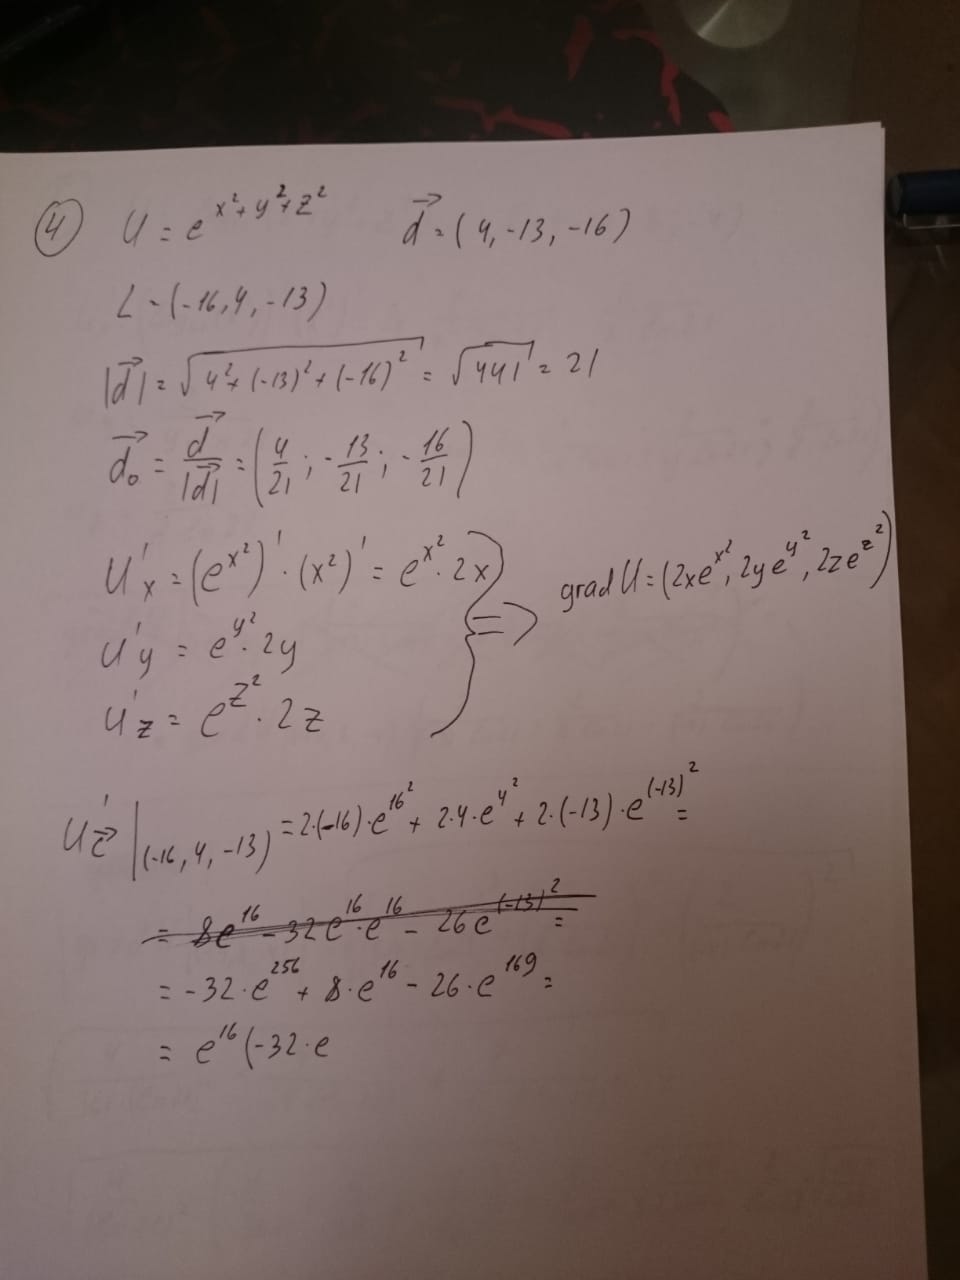 ④ U = e^{x²+y²+z²} d⃗ = (4, -13, -16)
L - (-16, 4, -13)
|d⃗| = √(4² + (-13)² + (-16)²) = √441 = 21
d⃗₀ = d⃗/|d⃗| = (4/21 ; -13/21 ; -16/21)
U'x = (e^{x²})' · (x²)' = e^{x²} · 2x
U'y = e^{y²} · 2y
U'z = e^{z²} · 2z
} ⇒ grad U = (2xe^{x²}, 2ye^{y²}, 2ze^{z²})
U'|(-16, 4, -13) = 2·(-16)·e^{16²} + 2·4·e^{4²} + 2·(-13)·e^{(-13)²} =
= 8e^{16} - 32e^{16}·e^{16} - 26e^{(-13)²} =
= -32·e^{256} + 8·e^{16} - 26·e^{169} =
= e^{16}(-32·e